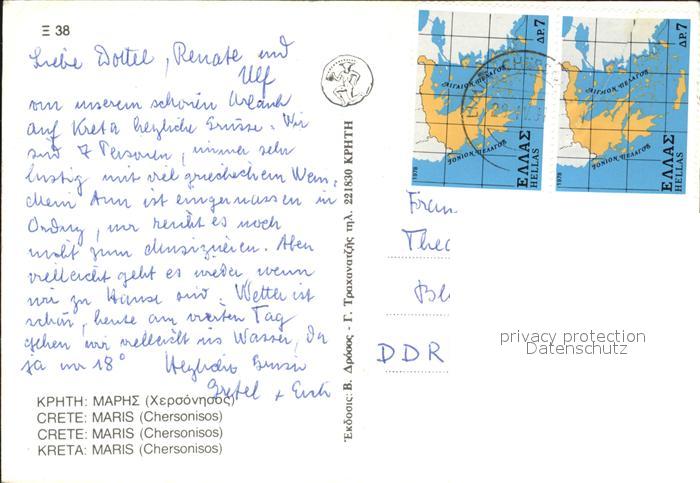 Ξ 38
Liebe Dottel, Renate und
Ulf
von unserem schönen Urlaub
auf Kreta herzliche Grüsse. Wir
sind 7 Personen, immer sehr
lustig mit viel griechischem Wein.
Mein Arm ist einigermassen in
Ordng, nur reicht es noch
nicht zum Musizieren. Aben
vielleicht geht es wieder wenn
wir zu Hause sind. Wetter ist
schön, heute am vierten Tag
gehen wir vielleicht ins Wasser, da
ja nur 18°
Herzliche Grüsse
Gretel +
ΚΡΗΤΗ: ΜΑΡΗΣ (Χερσόνησος)
CRETE: MARIS (Chersonisos)
CRETE: MARIS (Chersonisos)
KRETA: MARIS (Chersonisos)
Έκδοσις: Β. Δρόσος - Γ. Τραχανατζής τηλ. 221830 ΚΡΗΤΗ
ΑΙΓΑΙΟΝ ΠΕΛΑΓΟΣ
ΙΟΝΙΟΝ ΠΕΛΑΓΟΣ
1978
ΕΛΛΑΣ
HELLAS
ΔΡ. 7
ΑΙΓΑΙΟΝ ΠΕΛΑΓΟΣ
ΙΟΝΙΟΝ ΠΕΛΑΓΟΣ
1978
ΕΛΛΑΣ
HELLAS
ΔΡ. 7
Fram
Thea
Bl
DDR
privacy protection
Datenschutz